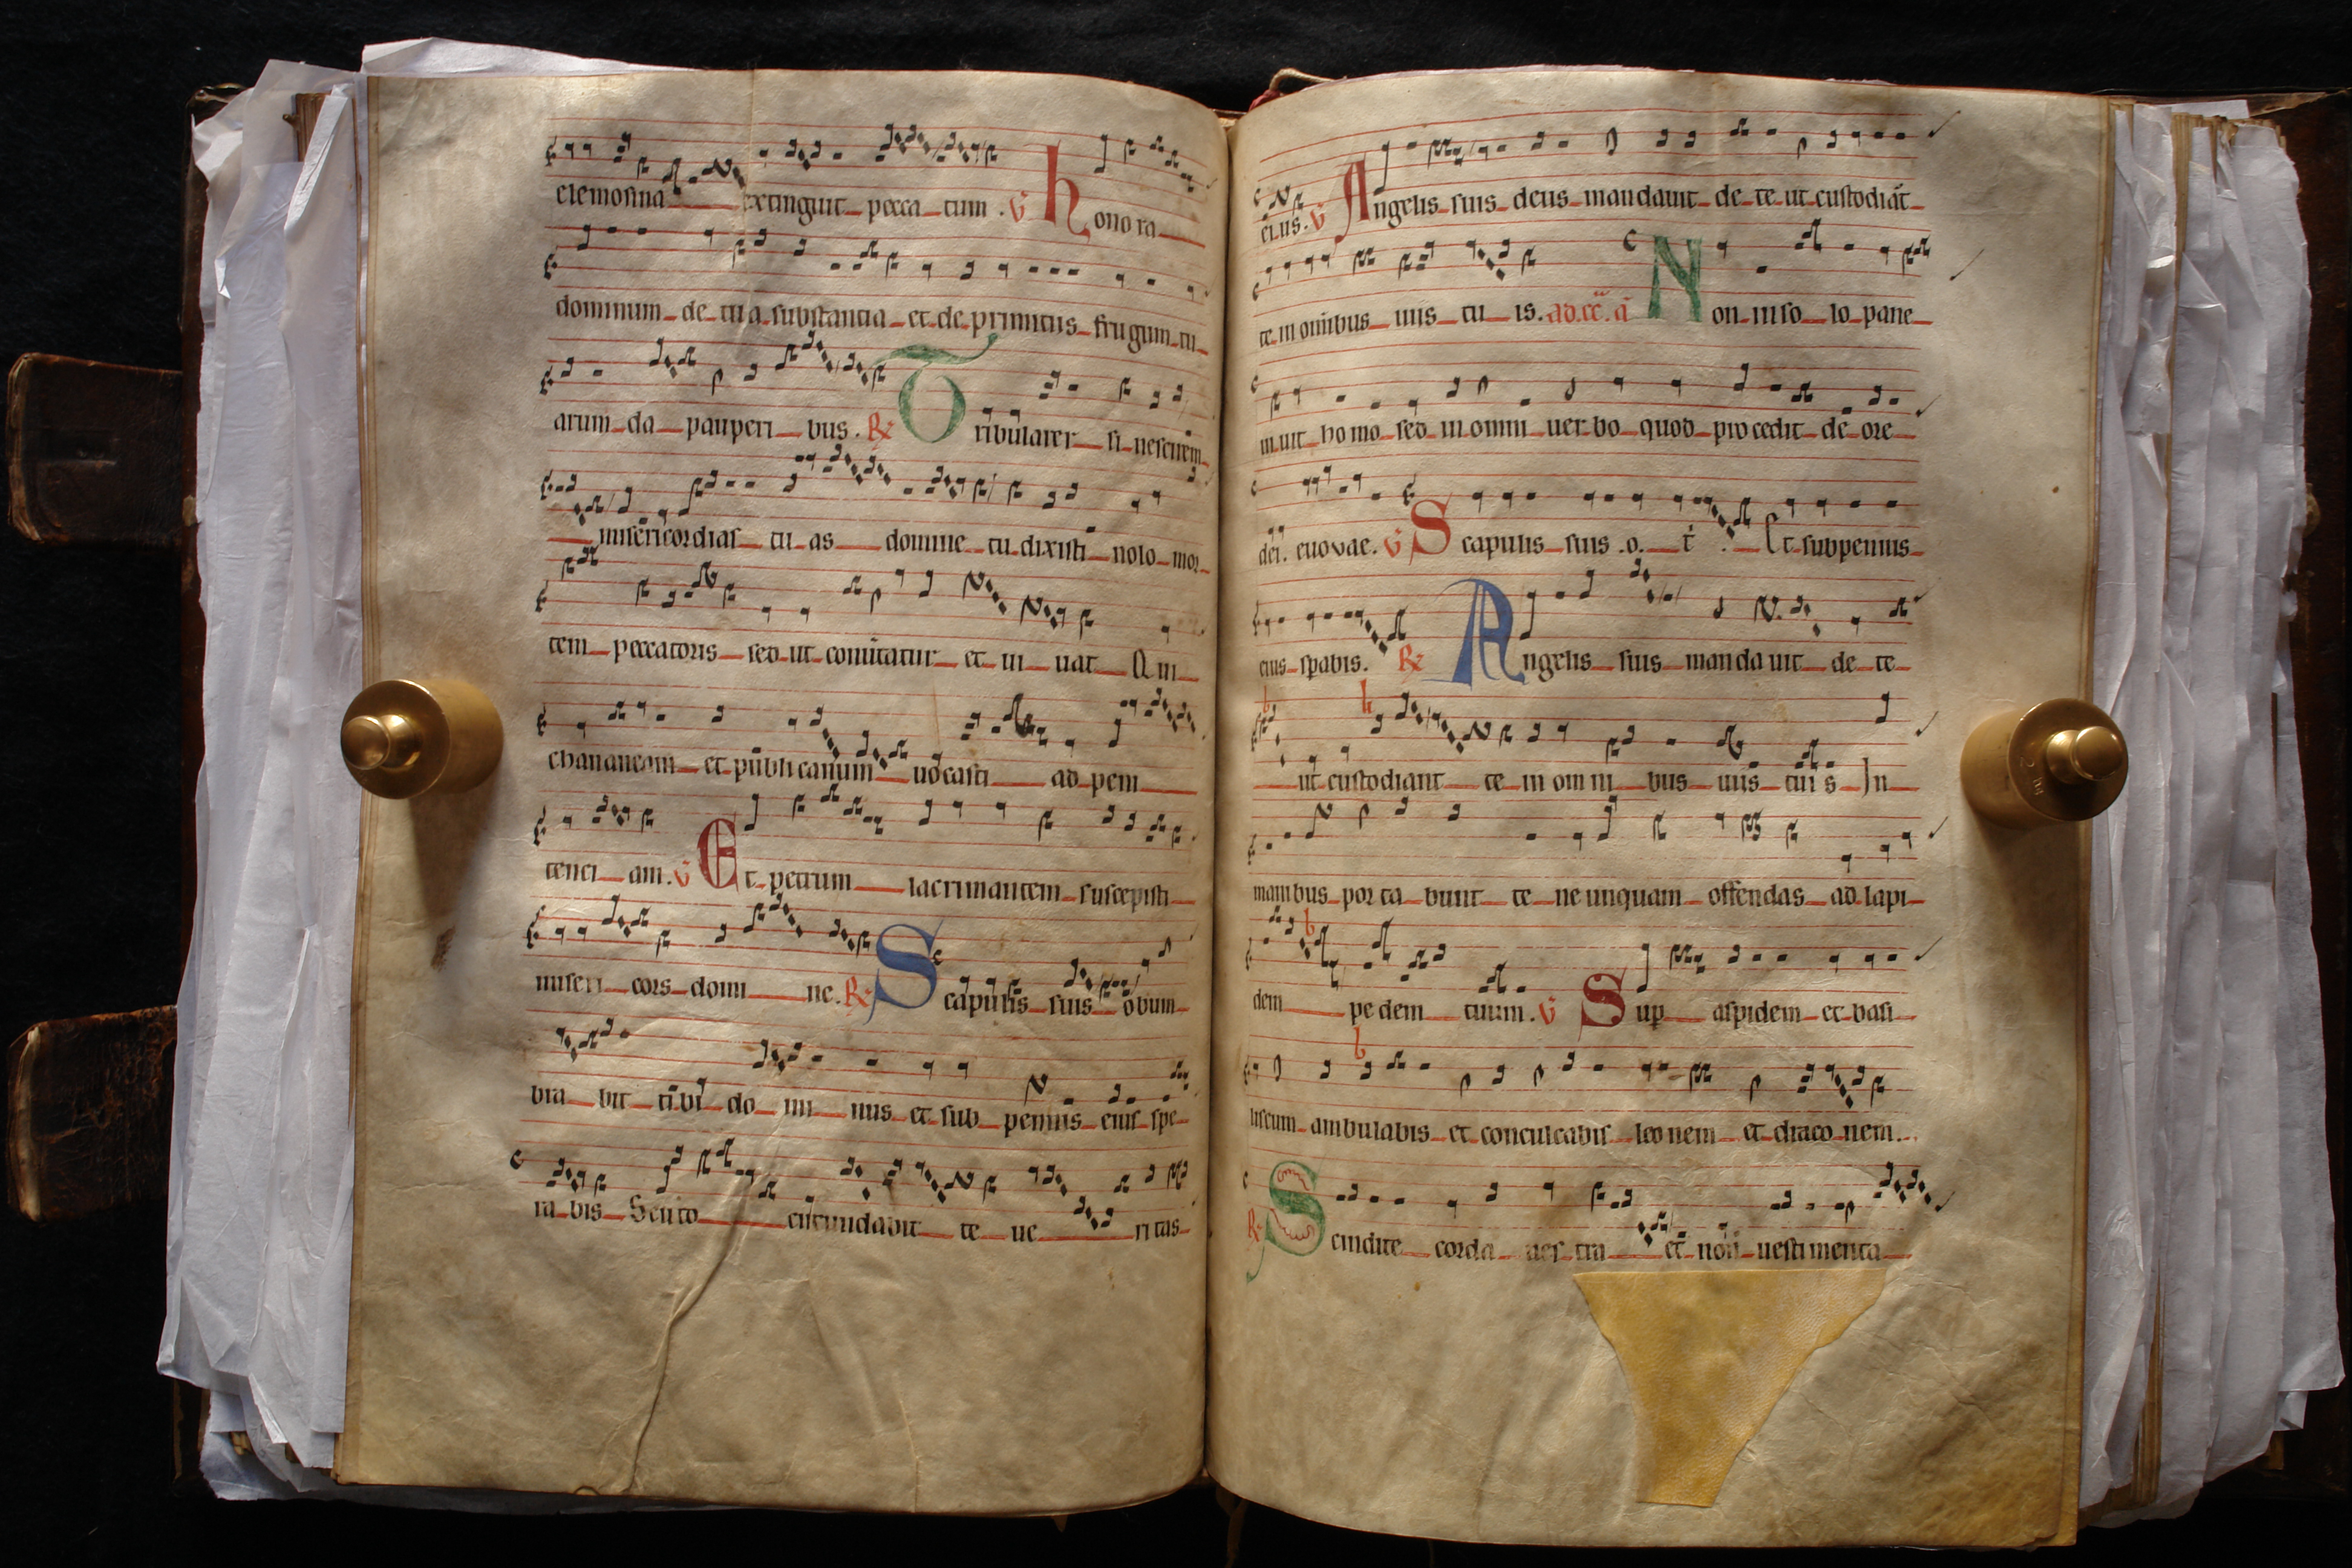 elemosina extinguit pecca tum . V hono ra
dominum de tu a substantia et de primitiis frugum tu
arum da pauperi bus . R Tribularer si nescirem
misericordias tu as domine tu dixisti nolo mor
tem peccatoris sed ut conuertatur et ui uat Qui
chananeam et publicanum uocasti ad peni
tenci am . V Et petrum lacrimantem suscepisti
miseri cors domi ne . R Scapulis suis obum
bra bit ti bi do mi nus et sub pennis eius spe
ra bis Scuto circundabit te ue ritas
ei us . V Angelis suis deus mandauit de te ut custodiāt
te in omībus uiis tu is . ad. Non in so lo pane
uiuit homo sed in omni uer bo quod procedit de ore
dei . euovae . V Scapulis suis .o. t . Et sub pennis
eius spabis . R Angelis suis manda uit de te
ut custodiant te in omni bus uiis tui s In
manibus por ta bunt te ne unquam offendas ad lapi
dem pe dem tuum . V Sup aspidem et basi
liscum ambulabis et conculcabis leo nem et draco nem .
R Scindite corda ues tra et non uesti menta